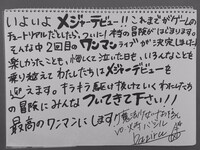 いよいよメジャーデビュー!! これまでがゲームの
チュートリアルだとしたら、ついに!本当の冒険がはじまります。
そんな中2回目のワンマンライブが決定しました!
楽しかったことも、悔しくて泣いた日も、いろんなことを
乗り越えてわたしたちはメジャーデビューを
迎えます。キラキラ駆け抜けていくわたしたち
の冒険にみんなついてきて下さい!!
最高のワンマンにします!